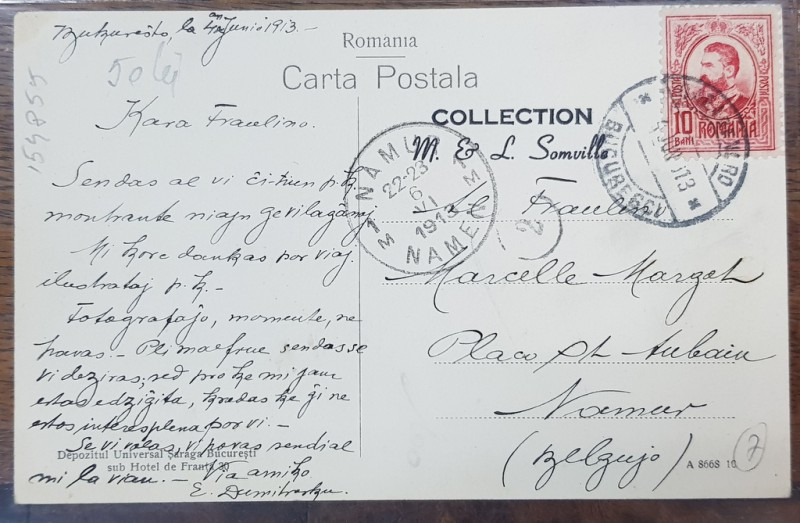 Bukureŝto, la 4an Junio 1913.-
50 lei
154855
Romania
Carta Postala
Kara Fraŭlino.
Sendas al vi ĉi-tiun p.k.
montrante niajn gevilaĝanoj
Mi kore dankas por viaj
ilustrataj p.k.-
Fotografaĵo, momente, ne
havas.- Pli malfrue sendas se
vi deziras, sed pro ke mi jam
estas edziĝita, kredas ke ĝi ne
estos interesplena por vi.-
Se vi volas, vi povas sendi al
mi la vian.- Via amiko
E. Dumitresku.
Depozitul Universal Șaraga București
sub Hotel de Franța 20
COLLECTION
M. & L. Somville
NAMUR 1
22-23
6
VI
1913
M
M
NAMEN
2
10
BANI
POSTA
POSTA
ROMANIA
BUCURESCI
913
Fraŭlino
Marcelle Margot
Place St. Aubain
Namur
(Belgujo)
A 8668 10
7